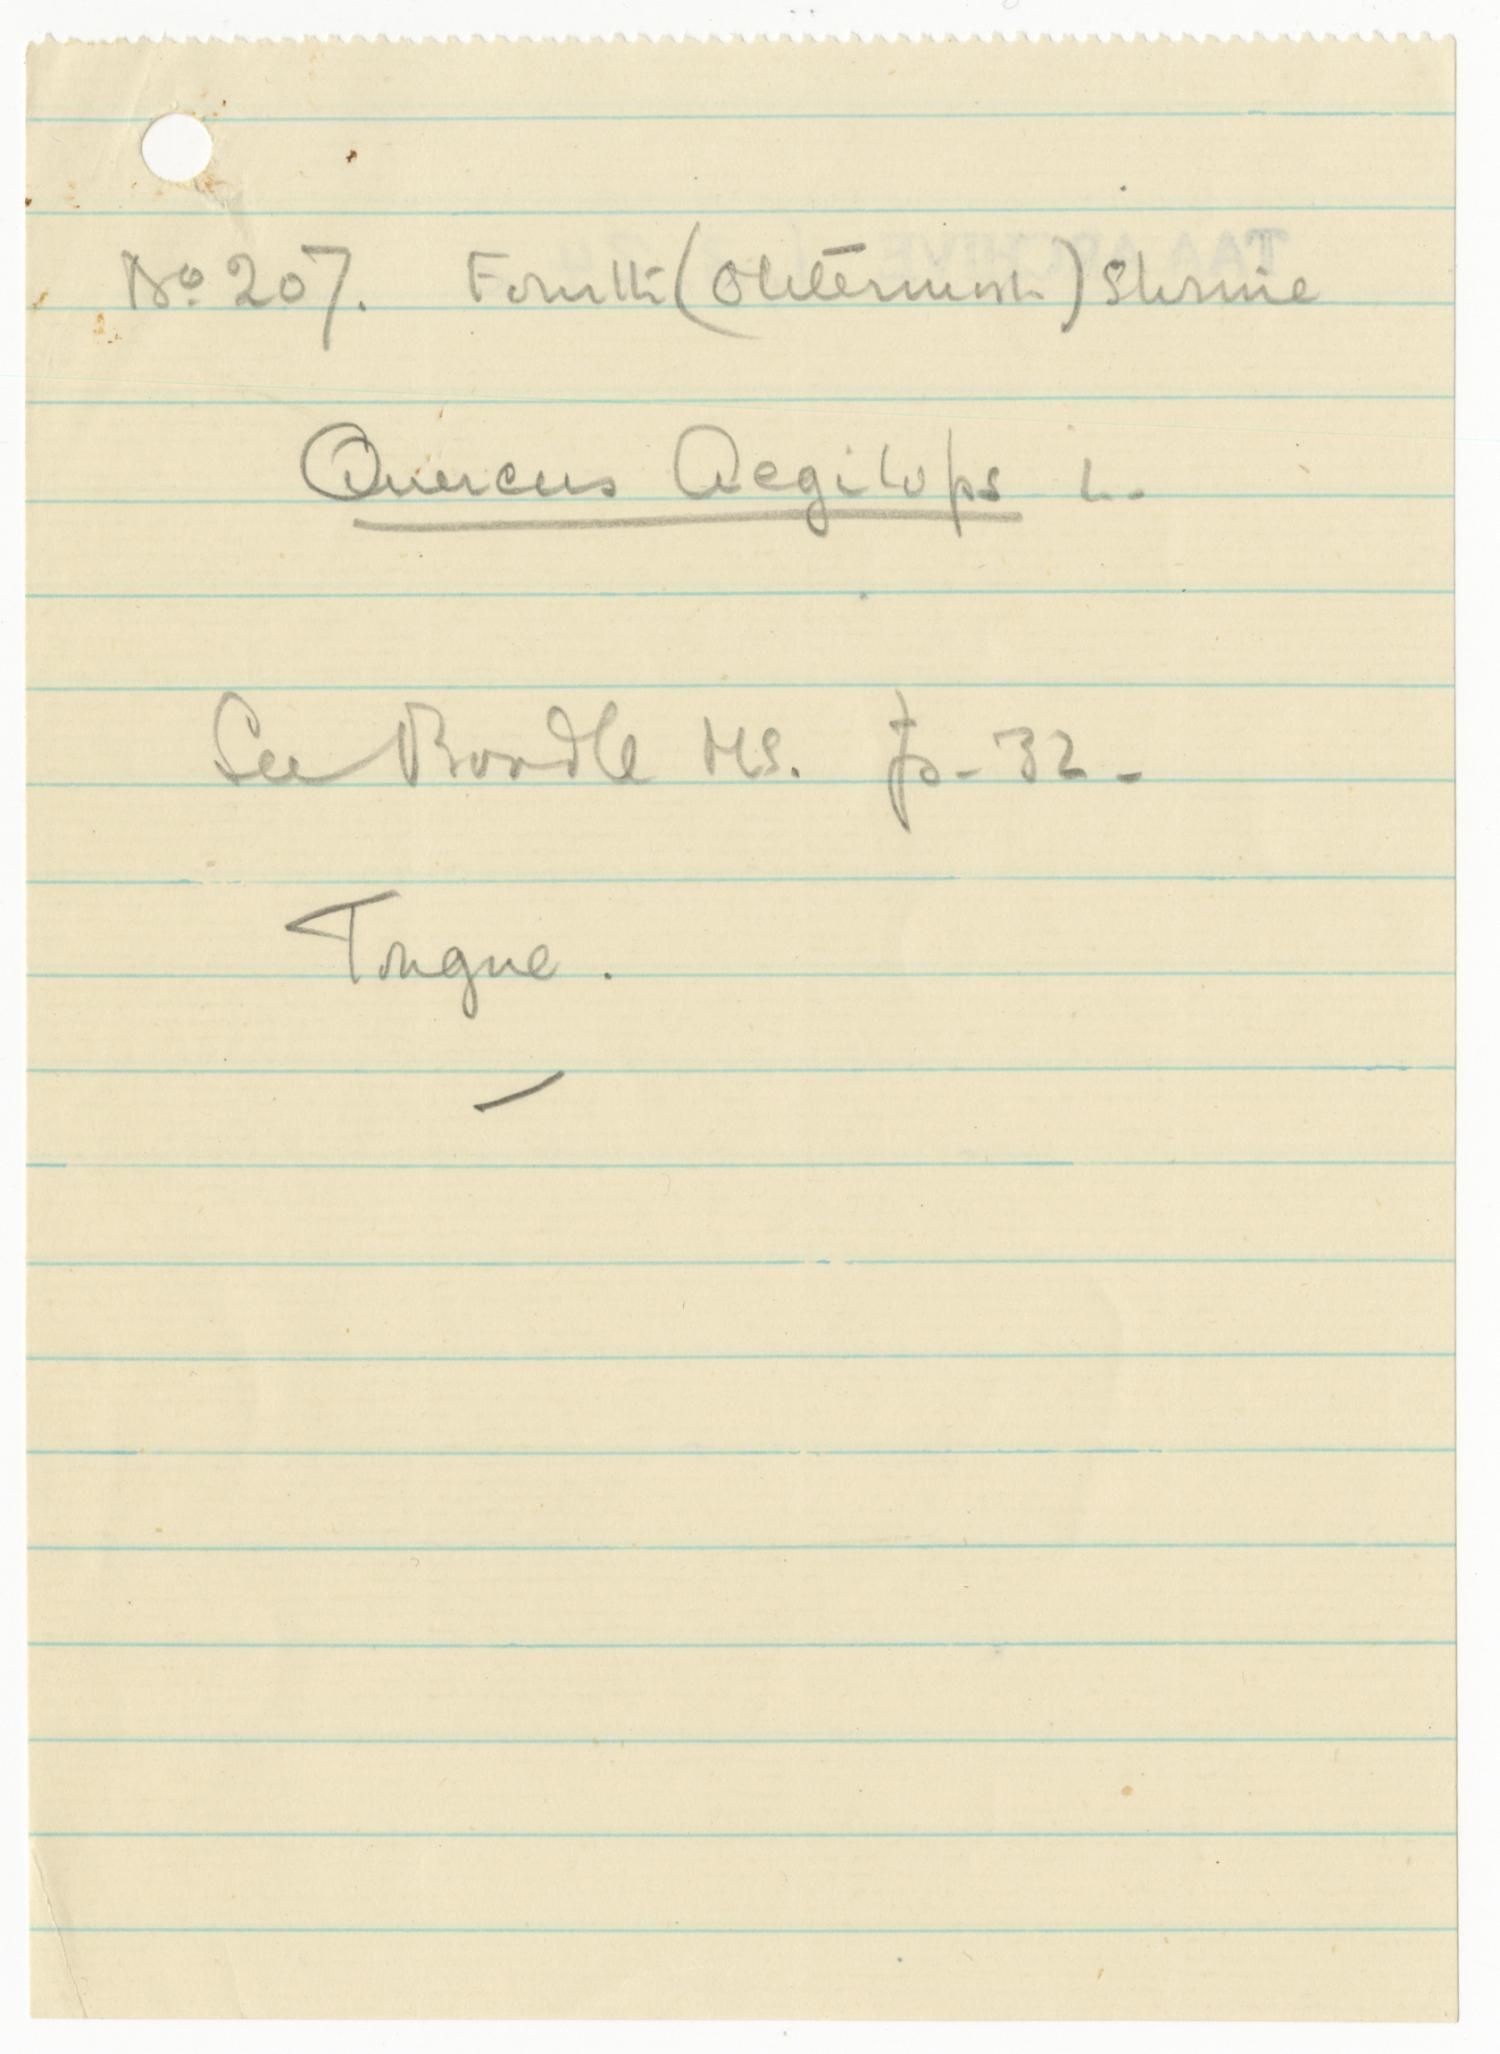 No 207. Fourth (Outermost) Shrine
Quercus Aegilops L.
See Boodle MS. p. 32.
Tongue.
TAA ARCHIVE